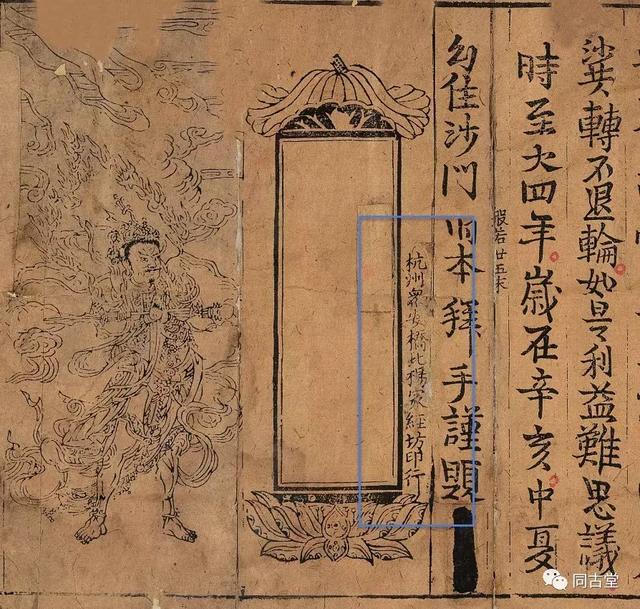 冀轉不退輪如是利益難思議
時至大四年歲在辛亥中夏
般若廿五末
幻住沙門明本拜手謹題
杭州眾安橋北楊家經坊印行
同古堂